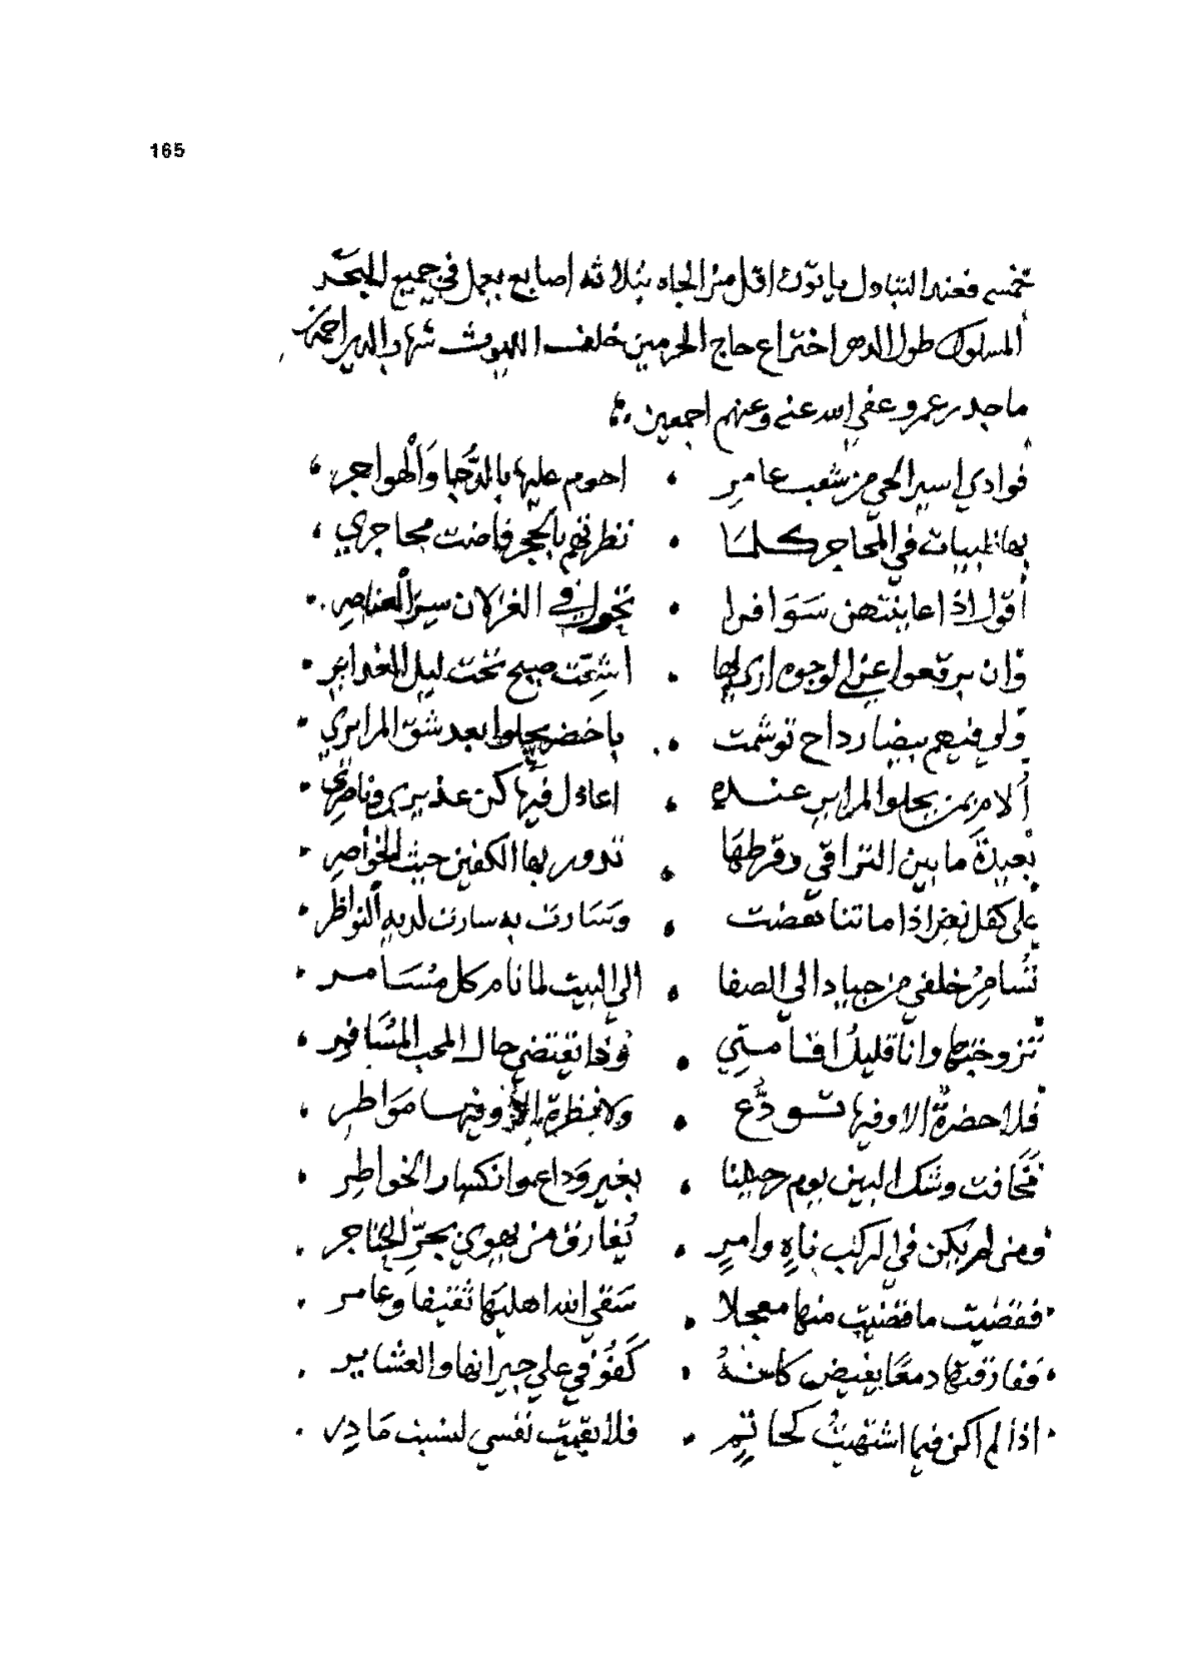 165
فعند التبادل يأتوك اقل من الجاه بثلاثه اصابع يعمل في جميع البحر
المسلوك طول الدهر اختراع حاج الحرمين خلف الليوث شهاب الدين احمد بن
ماجد بن عمرو عفي الله عنه وعنهم اجمعين
فوادي اسير الحي من شعب عامر • اهوم عليها بالدجا والهواجر
بها ظبيات في المحاجر كلما • نظرتهم بالحجر فاضت محاجري
أقول اذا عاينتهن سوافرا • تخول في الغزلان سر العناصر
وان برقعوا عني الوجوه اري لها • اشعت صبح تحت ليل الغداير
ولو فيهم بيضا رداح توشمت • باخضر يحلوا بعد شق المراير
ألا من بمن يحلوا المراير عنده • اعاذل فيها كن عذيري وناصري
بعيدة ما بين التراقي وقرطها • تدور بها الكفين حيث الخواصر
على كفل نهز اذا ما تنا نهضت • وسارت به سارت لديه النواظر
تسامر خلفي من جياد الي الصفا • الي البيت لما نام كل مسامر
تزوجتها وانا قليل اقامتي • وذا تقتضي حال المحب المسافر
فلا حضرة الا وفيها تودع • ولا نظرة الا وفيها مواطر
فخافت وشك البين يوم رحيلنا • بغير وداع وانكسار الخواطر
ومن لم يكن في الركب ناه وامر • يفارق من يهوي بحر الخناجر
فقضيت ما قضيت منها معجلا • سقي الله اهليها ثقيفا وعامر
ففارقتها دمعا يفيض كانه • كفوفي علي جيرانها والعشاير
اذا لم اكن فيما اشتهيت كحاتم • فلا بقيت نفسي لسبب مادر